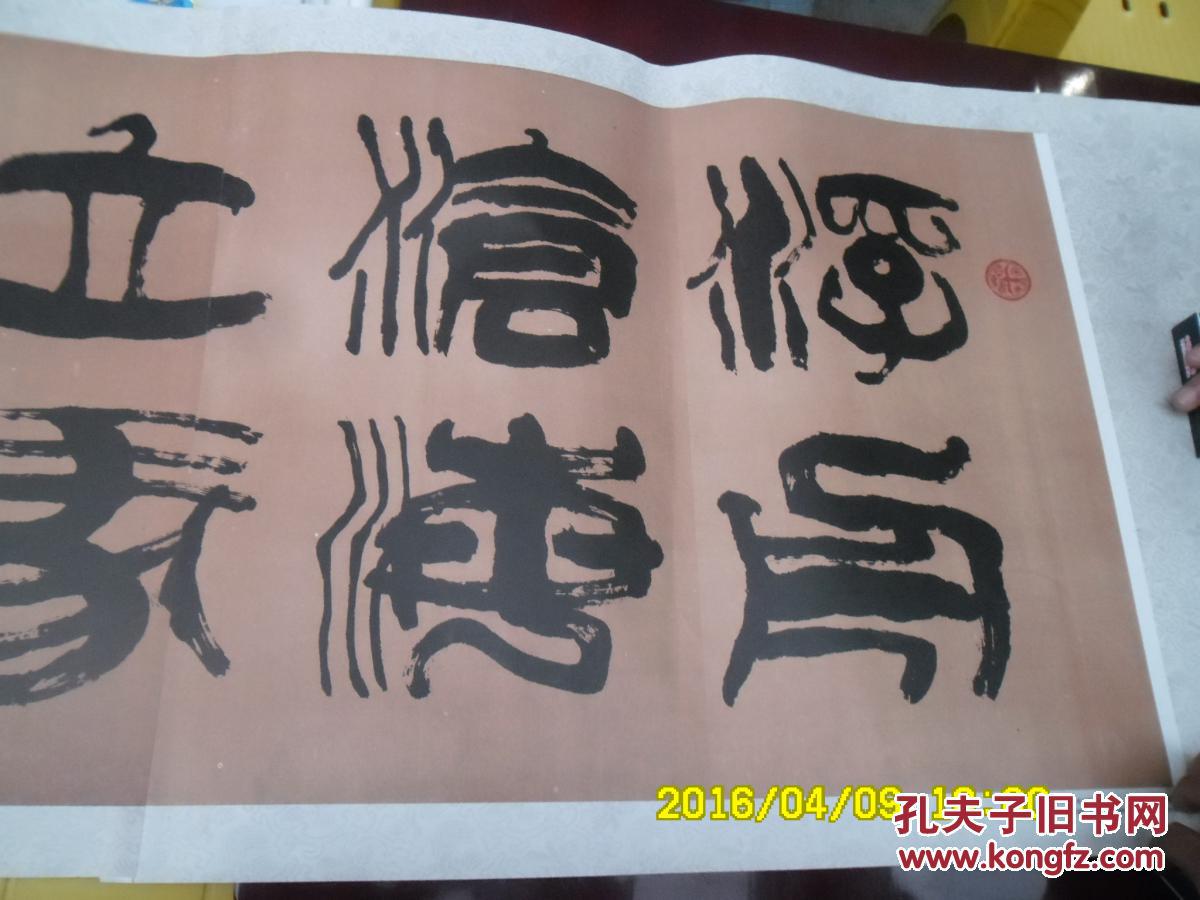 浮舟
滄海
立馬
2016/04/09
孔夫子旧书网
www.kongfz.com